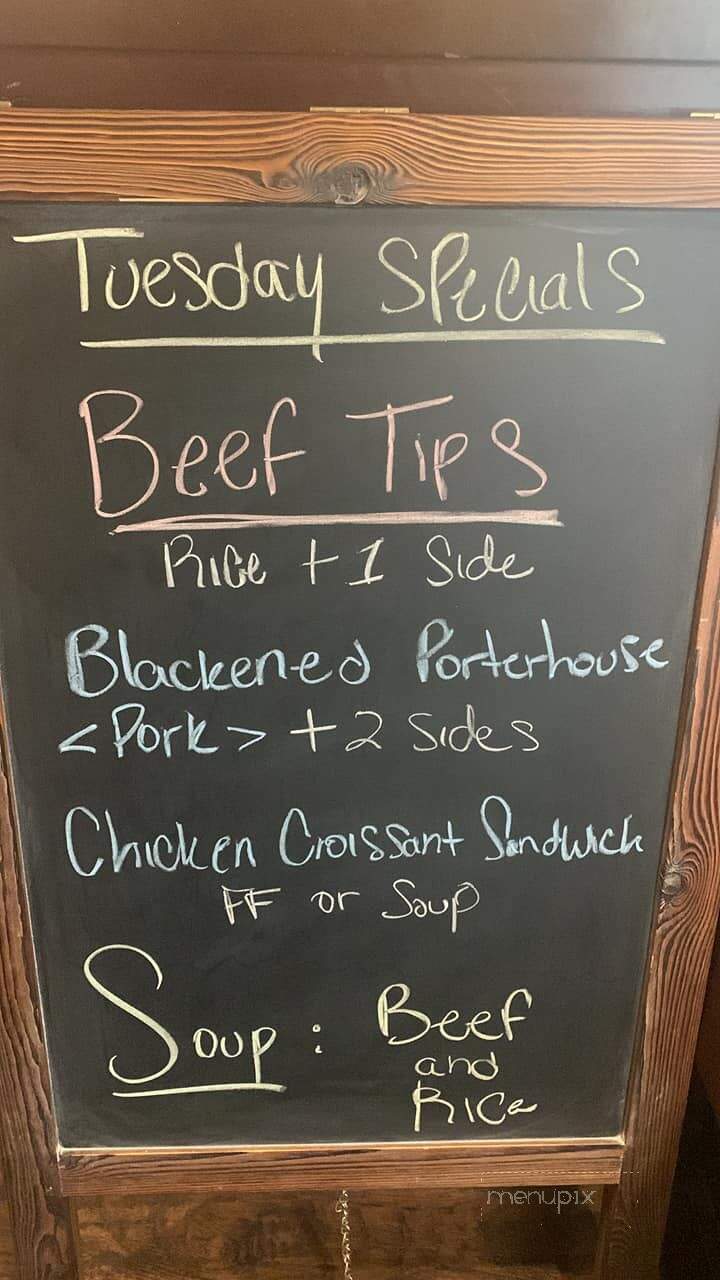 Tuesday Specials
Beef Tips
Rice + 1 Side
Blackened Porterhouse
<Pork> + 2 Sides
Chicken Croissant Sandwich
FF or Soup
Soup: Beef
and
Rice
menupix